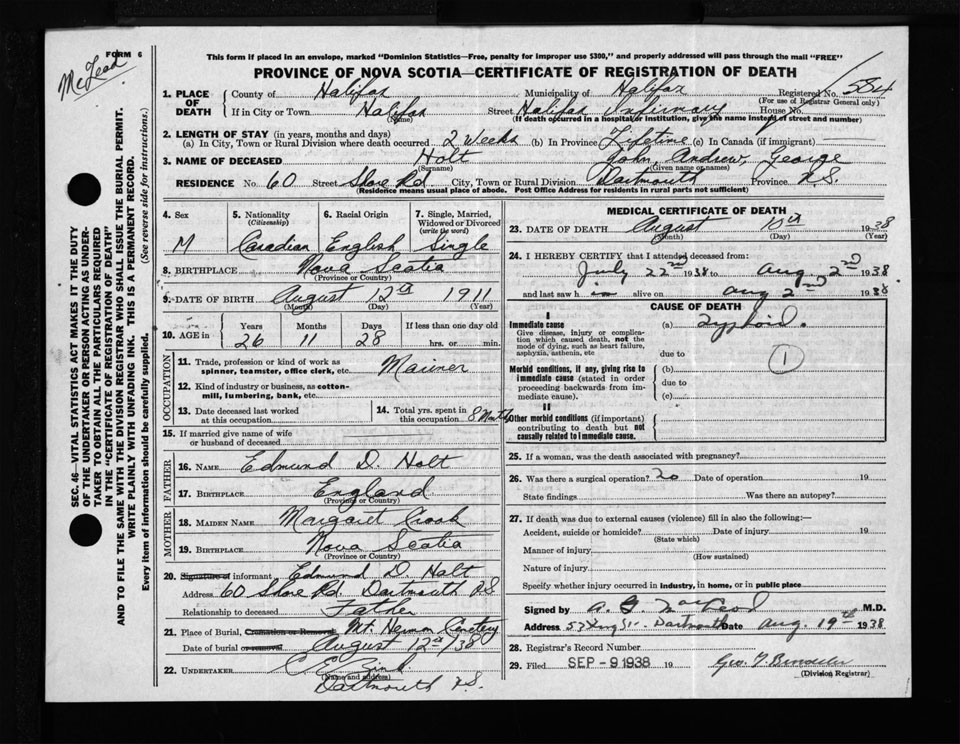 FORM 6
McLeod
This form if placed in an envelope, marked "Dominion Statistics—Free, penalty for improper use $300," and properly addressed will pass through the mail "FREE"
PROVINCE OF NOVA SCOTIA—CERTIFICATE OF REGISTRATION OF DEATH
1. PLACE OF DEATH County of Halifax Municipality of Halifax Registered No. 584
(For use of Registrar General only)
If in City or Town Halifax Street Halifax Infirmary House No.
(Name) (If death occurred in a hospital or institution, give the name instead of street and number)
2. LENGTH OF STAY (in years, months and days)
(a) In City, Town or Rural Division where death occurred 2 Weeks (b) In Province Lifetime (c) In Canada (if immigrant)
3. NAME OF DECEASED Holt John Andrew George
(Surname) (Given name or names)
RESIDENCE No. 60 Street Shore Rd City, Town or Rural Division Dartmouth Province N.S.
(Residence means usual place of abode. Post Office Address for residents in rural parts not sufficient)
SEC. 46—VITAL STATISTICS ACT MAKES IT THE DUTY
OF THE UNDERTAKER OR PERSON ACTING AS UNDER-
TAKER TO OBTAIN ALL THE PARTICULARS REQUIRED
IN THE "CERTIFICATE OF REGISTRATION OF DEATH"
AND TO FILE THE SAME WITH THE DIVISION REGISTRAR WHO SHALL ISSUE THE BURIAL PERMIT.
WRITE PLAINLY WITH UNFADING INK. THIS IS A PERMANENT RECORD.
Every item of information should be carefully supplied. (See reverse side for instructions.)
4. Sex 5. Nationality 6. Racial Origin 7. Single, Married,
(Citizenship) Widowed or Divorced
(write the word)
M Canadian English Single
8. BIRTHPLACE Nova Scotia
(Province or Country)
9. DATE OF BIRTH August 12th 1911
(Month) (Day) (Year)
10. AGE in Years Months Days If less than one day old
26 11 28 hrs. or min.
OCCUPATION
11. Trade, profession or kind of work as
spinner, teamster, office clerk, etc. Mariner
12. Kind of industry or business, as cotten-
mill, lumbering, bank, etc.
13. Date deceased last worked
at this occupation
14. Total yrs. spent in
this occupation 8 Months
15. If married give name of wife
or husband of deceased
FATHER
16. NAME Edmund D. Holt
17. BIRTHPLACE England
(Province or Country)
MOTHER
18. MAIDEN NAME Margaret Crook
19. BIRTHPLACE Nova Scotia
(Province or Country)
20. Signature of informant Edmund D. Holt
Address 60 Shore Rd. Dartmouth N.S.
Relationship to deceased Father
21. Place of Burial, Cremation or Removal Mt. Hermon Cemetery
Date of burial or removal August 12th/38
22. UNDERTAKER C. E. Zink
(Name and address)
Dartmouth N.S.
MEDICAL CERTIFICATE OF DEATH
23. DATE OF DEATH August 10th 1938
(Month) (Day) (Year)
24. I HEREBY CERTIFY that I attended deceased from:
July 22nd 1938 to Aug 2nd 1938
and last saw h im alive on Aug 2nd 1938
CAUSE OF DEATH
I
Immediate cause (a) Typhoid.
Give disease, injury or complica-
tion which caused death, not the
mode of dying, such as heart failure,
asphyxia, asthenia, etc
due to
1
Morbid conditions, if any, giving rise to
immediate cause (stated in order
proceeding backwards from im-
mediate cause).
(b)
due to
(c)
II
Other morbid conditions (if important)
contributing to death but not
causally related to immediate cause.
25. If a woman, was the death associated with pregnancy?
26. Was there a surgical operation? no Date of operation 19
State findings Was there an autopsy?
27. If death was due to external causes (violence) fill in also the following:—
Accident, suicide or homicide? Date of injury 19
(State which)
Manner of injury
(How sustained)
Nature of injury
Specify whether injury occurred in industry, in home, or in public place
Signed by A. G. MacLeod M.D.
Address 53 King St. Dartmouth Date Aug. 19th 1938
28. Registrar's Record Number
29. Filed SEP - 9 1938 19 Geo. T.
(Division Registrar)